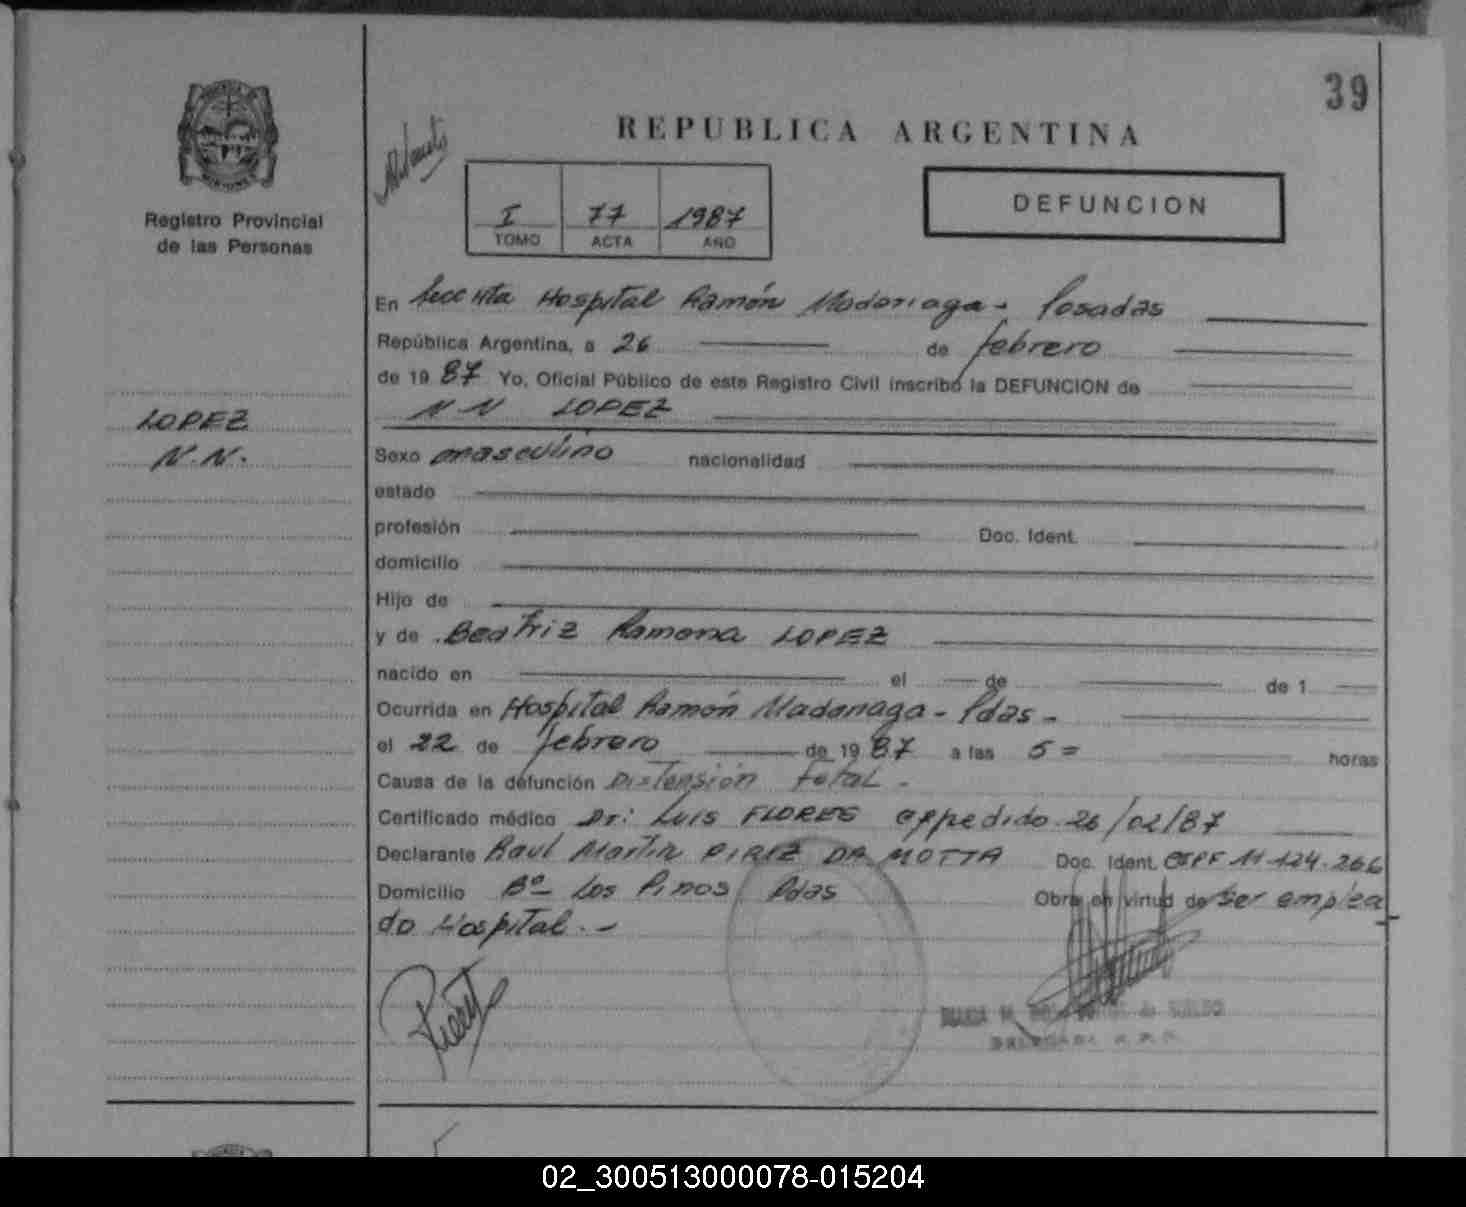 39
REPUBLICA ARGENTINA
Registro Provincial
de las Personas
I 77 1987
TOMO ACTA AÑO
DEFUNCION
En Secc Hta Hospital Ramón Madariaga - Posadas
República Argentina, a 26 de febrero
de 1987 Yo, Oficial Público de este Registro Civil inscribo la DEFUNCION de
N N LOPEZ
LOPEZ
N.N.
Sexo masculino nacionalidad
estado
profesión Doc. Ident.
domicilio
Hijo de
y de Beatriz Ramona LOPEZ
nacido en el de de 1
Ocurrida en Hospital Ramón Madariaga - Pdas -
el 22 de febrero de 1987 a las 5 = horas
Causa de la defunción Distensión fetal -
Certificado médico Dr: Luis FLORES expedido 26/02/87
Declarante Raul Martin PIRIZ DA MOTTA Doc. Ident. 11.124.266
Domicilio Bº Los Pinos Pdas Obra en virtud de ser emplea
do Hospital. -
02_300513000078-015204